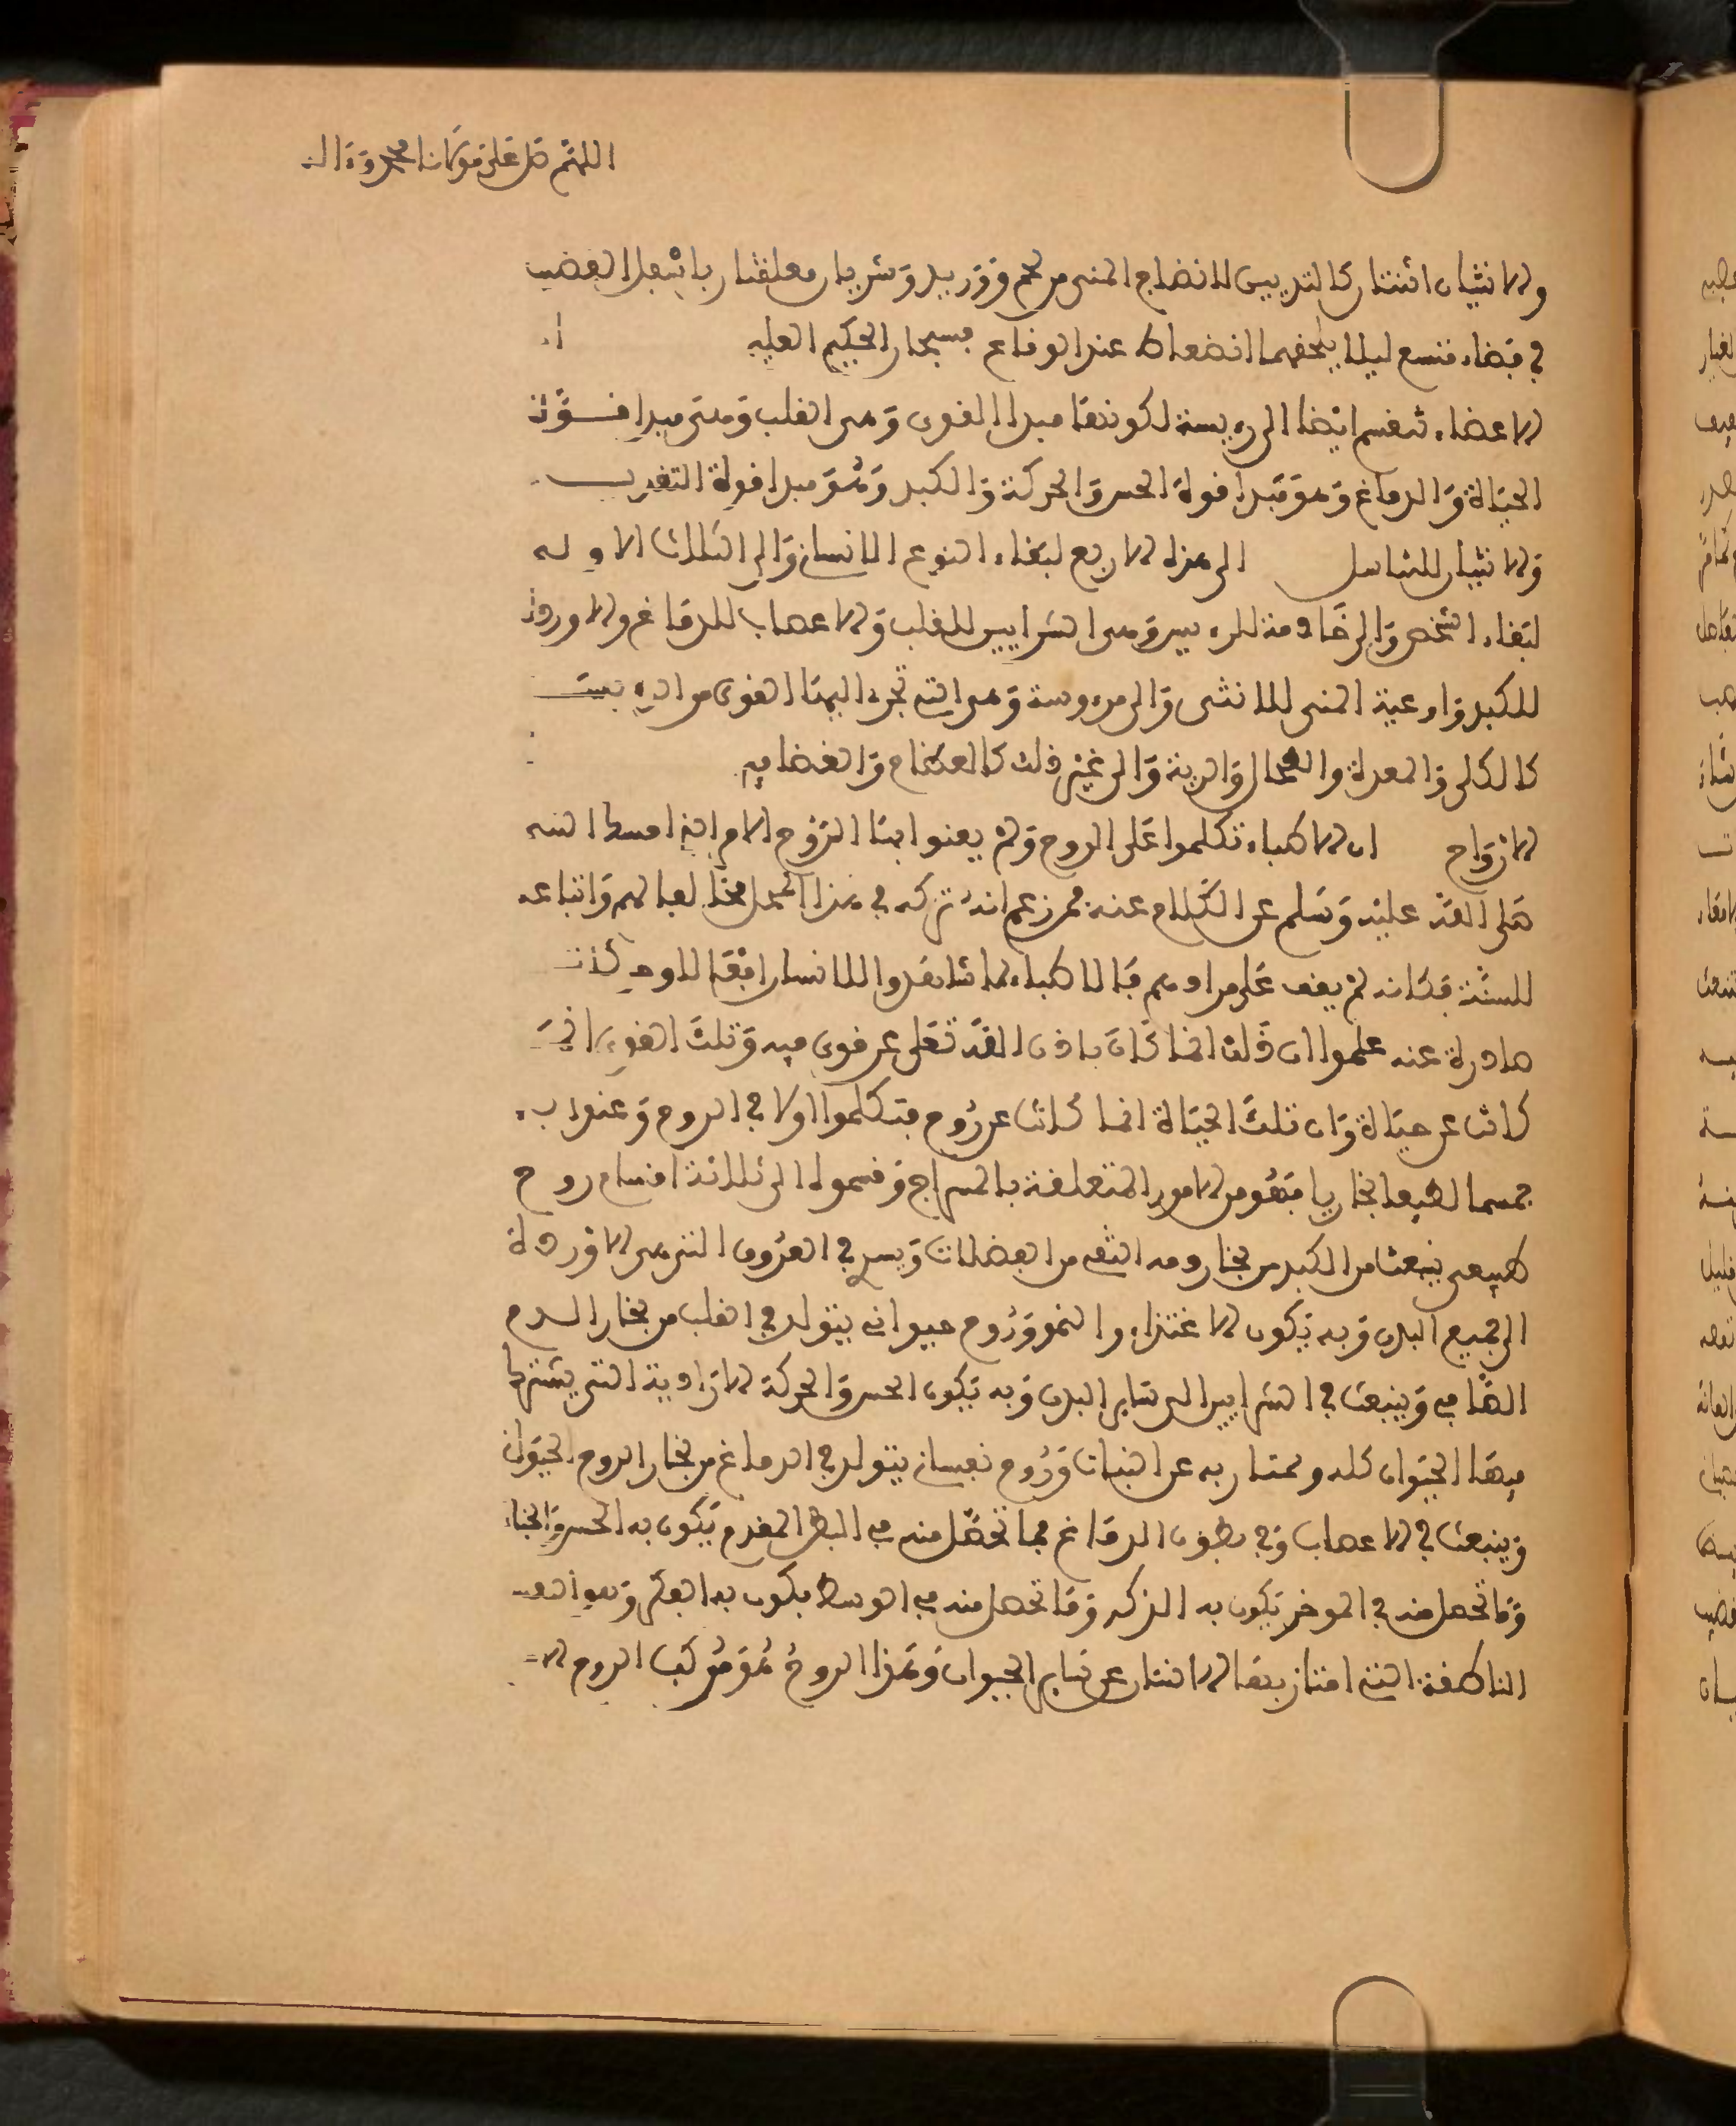 اللهم صل على مولانا محمد وءاله
والانثيان اثنتان كالثديين لانضاج المني من لحم ووريد وشريان معلقتان باسفل القضيب
في فضاء متسع ليلا يلحقهما انضغاط عند الوقاع فسبحان الحكيم العليم
الاعضاء تنقسم ايضا الى رءيسة لكونها مبدا القوى وهي القلب وهو مبدا قوة
الحياة والدماغ وهو مبدا قوة الحس والحركة والكبد وهو مبدا قوة التغذية
والانثيان للتناسل الى هذه الاربع لبقاء النوع الانساني والى الثلاث الاول
لبقاء الشخص والى خادمة للرءيس وهي الشرايين للقلب والاعصاب للدماغ والاوردة
للكبد واوعية المني للانثى والى مرءوسة وهي التي تجرء اليها القوى من الرءيسة
كالكلى والمعدة والطحال والرية والى غير ذلك كالعظام والغضاريف
الارواح ان الاطباء تكلموا على الروح ولم يعنوا بها الروح الامري الذي امسك النبي
صلى الله عليه وسلم عن الكلام عنه فمن زعم انه تركه في هذا المحل مخالف لهم واتباعه
للسنة فكانه لم يقف على مرادهم فالاطباء لما شاهدوا للانسان افعالا وحركات
صادرة عنه علموا ان ذلك انما كان باذن الله تعلى عن قوى فيه وتلك القوى انما
كانت عن حياة وان تلك الحياة انما كانت عن روح فتكلموا اولا في الروح وعنوا به
جسما لطيفا بخاريا فهو من الامور المتعلقة بالمزاج وقسموه الى ثلاثة اقسام روح
طبيعي ينبعث من الكبد من بخار دمه النقي من الفضلات ويسري في العروق التي هي الاوردة
الى جميع البدن وبه يكون الاغتذاء والنمو وروح حيواني يتولد في القلب من بخار الدم
الصافي وينبعث في الشرايين الى سائر البدن وبه يكون الحس والحركة الارادية التي يشترك
فيها الحيوان كله ويمتاز به عن النبات وروح نفساني يتولد في الدماغ من بخار الروح الحيواني
وينبعث في الاعصاب وفي بطون الدماغ فما تحصل منه في البطن المقدم يكون به الحس والخيال
وما تحصل منه في الموخر يكون به الذكر وما تحصل منه في الوسط يكون به الفكر وهو النفس
الناطقة التي امتاز بها الانسان عن سائر الحيوان وهذا الروح هو مركب الروح